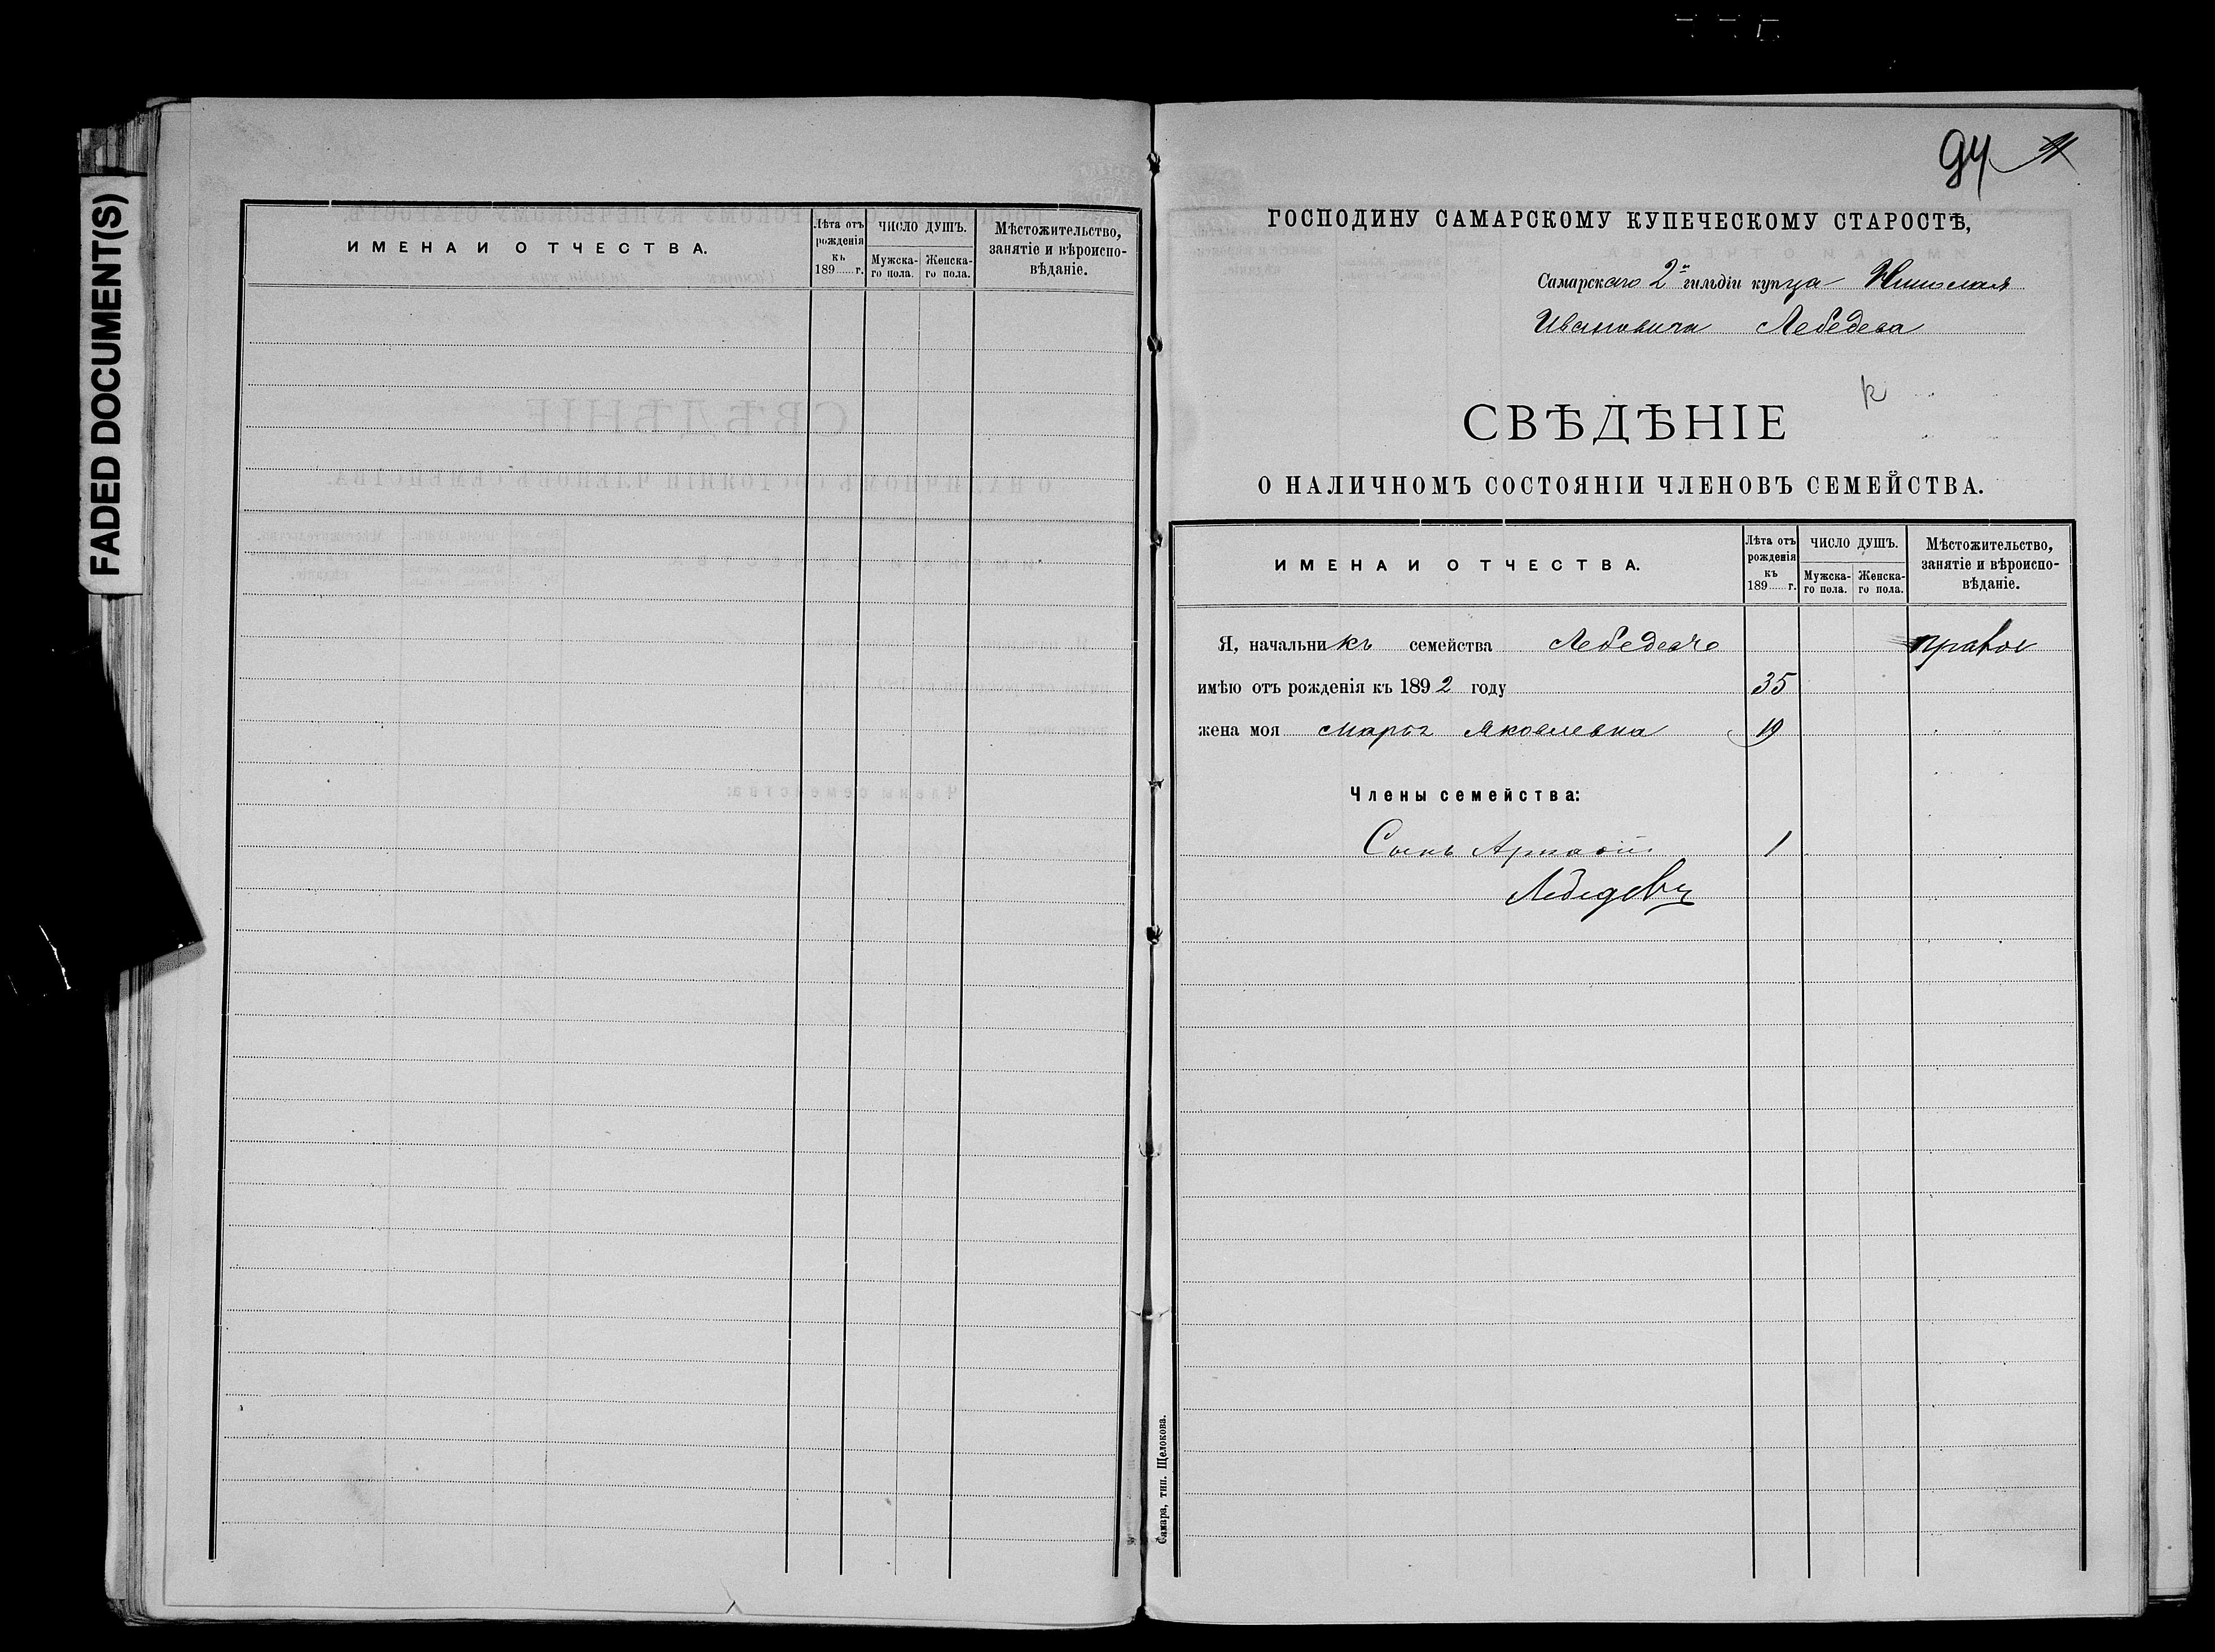 FADED DOCUMENT(S)
ИМЕНА И ОТЧЕСТВА.
Лѣта отъ рожденія къ 189 г.
ЧИСЛО ДУШЪ.
Мужска-го пола.
Женска-го пола.
Мѣстожительство, занятіе и вѣроиспо-вѣданіе.
94
ГОСПОДИНУ САМАРСКОМУ КУПЕЧЕСКОМУ СТАРОСТѢ,
Самарскаго 2й гильдіи купца Николая
Ивановича Лебедева
СВѢДѢНІЕ
О НАЛИЧНОМЪ СОСТОЯНІИ ЧЛЕНОВЪ СЕМЕЙСТВА.
ИМЕНА И ОТЧЕСТВА.
Лѣта отъ рожденія къ 189 г.
ЧИСЛО ДУШЪ.
Мужска-го пола.
Женска-го пола.
Мѣстожительство, занятіе и вѣроиспо-вѣданіе.
Я, начальникъ семейства правос
имѣю отъ рожденія къ 1892 году 35
жена моя Яковлевна 19
Члены семейства:
Сынъ 1
Лебедевъ
Самара, тип. Щелокова.